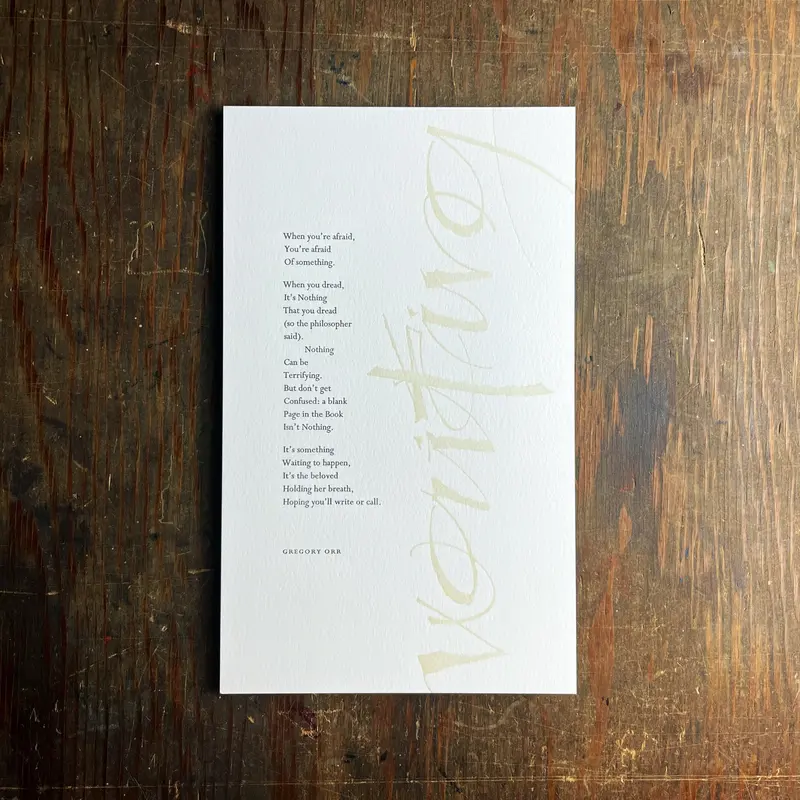 When you're afraid,
You're afraid
Of something.
When you dread,
It's Nothing
That you dread
(so the philosopher
said).
Nothing
Can be
Terrifying.
But don't get
Confused: a blank
Page in the Book
Isn't Nothing.
It's something
Waiting to happen,
It's the beloved
Holding her breath,
Hoping you'll write or call.
GREGORY ORR
waiting